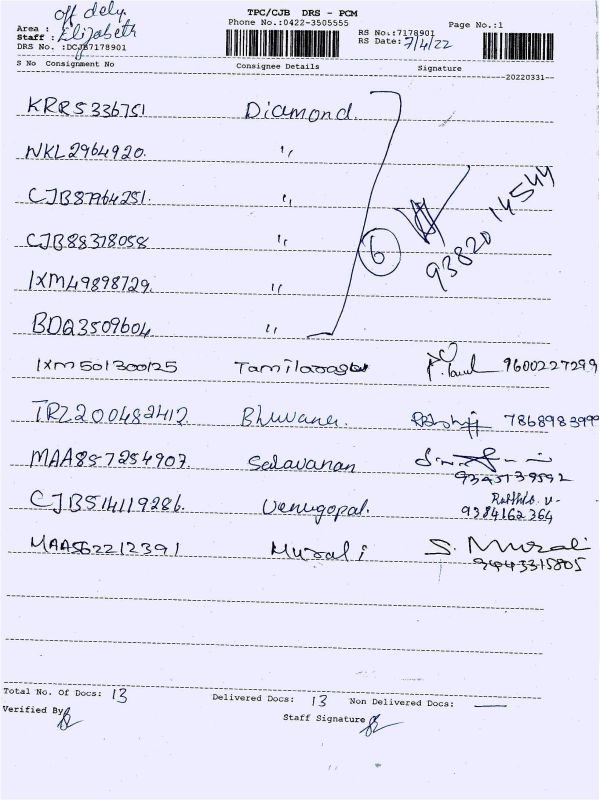 off dely.
TPC/CJB DRS - PCM
Area :
Phone No.:0422-3505555
Page No.:1
Staff : Elizabeth
RS No.:7178901
DRS No. :DCJB7178901
RS Date: 7/4/22
S No Consignment No Consignee Details Signature
20220331
KRR5336751 Diamond.
NKL2964920. "
CJB87964251. "
CJB88378058 "
6
93820 14544
IXM49898729. "
BDQ3509604 "
IXM501300125 Tamilarasu 9600227299
TRZ200482412. Bhuvana. 7868983999
MAA857254907. Salavanan
9345139592
CJB514119286. Venugopal.
9384162364
MAA562212391 Murali S. Murali
9443315805
Total No. Of Docs: 13 Delivered Docs: 13 Non Delivered Docs: —
Verified By
Staff Signature